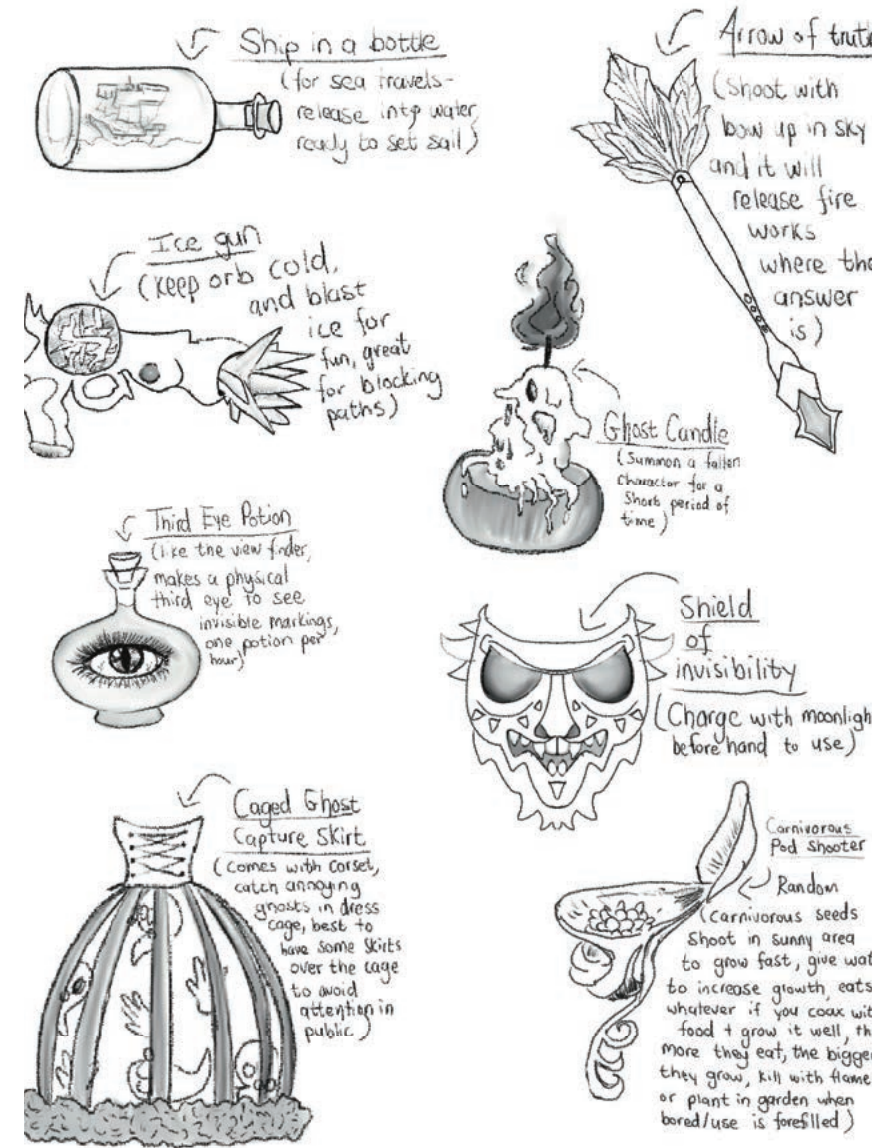 Ship in a bottle
(for sea travels-
release into water,
ready to set sail)
Arrow of truth
(Shoot with
bow up in sky
and it will
release fire
works
where the
answer
is)
Ice gun
(keep orb cold,
and blast
ice for
fun, great
for blocking
paths)
Ghost Candle
(Summon a fallen
Character for a
Short period of
time)
Third Eye Potion
(like the view finder,
makes a physical
third eye to see
invisible markings,
one potion per
hour)
Shield
of
invisibility
(Charge with moonligh
before hand to use)
Caged Ghost
Capture Skirt
(comes with corset,
catch annoying
ghosts in dress
cage, best to
have some skirts
over the cage
to avoid
attention in
public.)
Carnivorous
Pod Shooter
Random
(carnivorous seeds
Shoot in sunny area
to grow fast, give wat
to increase growth, eats
whatever if you coax wit
food + grow it well, th
more they eat, the bigger
they grow, kill with flame
or plant in garden when
bored/use is forefilled)